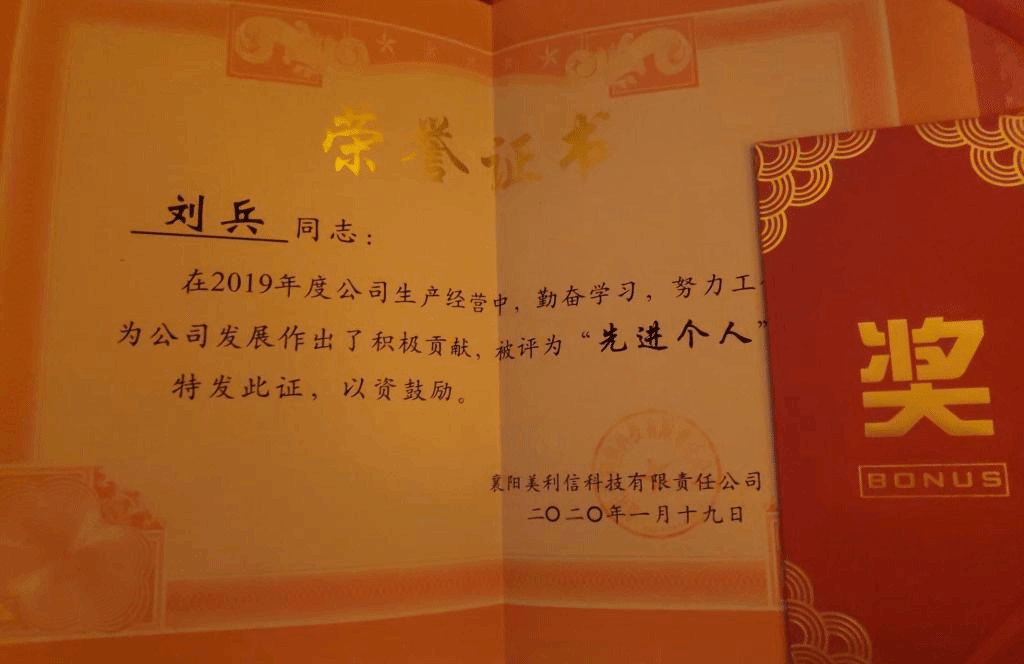 荣誉证书
刘兵 同志：
在2019年度公司生产经营中，勤奋学习，努力工
为公司发展作出了积极贡献，被评为“先进个人”
特发此证，以资鼓励。
襄阳美利信科技有限责任公司
二〇二〇年一月十九日
奖
BONUS